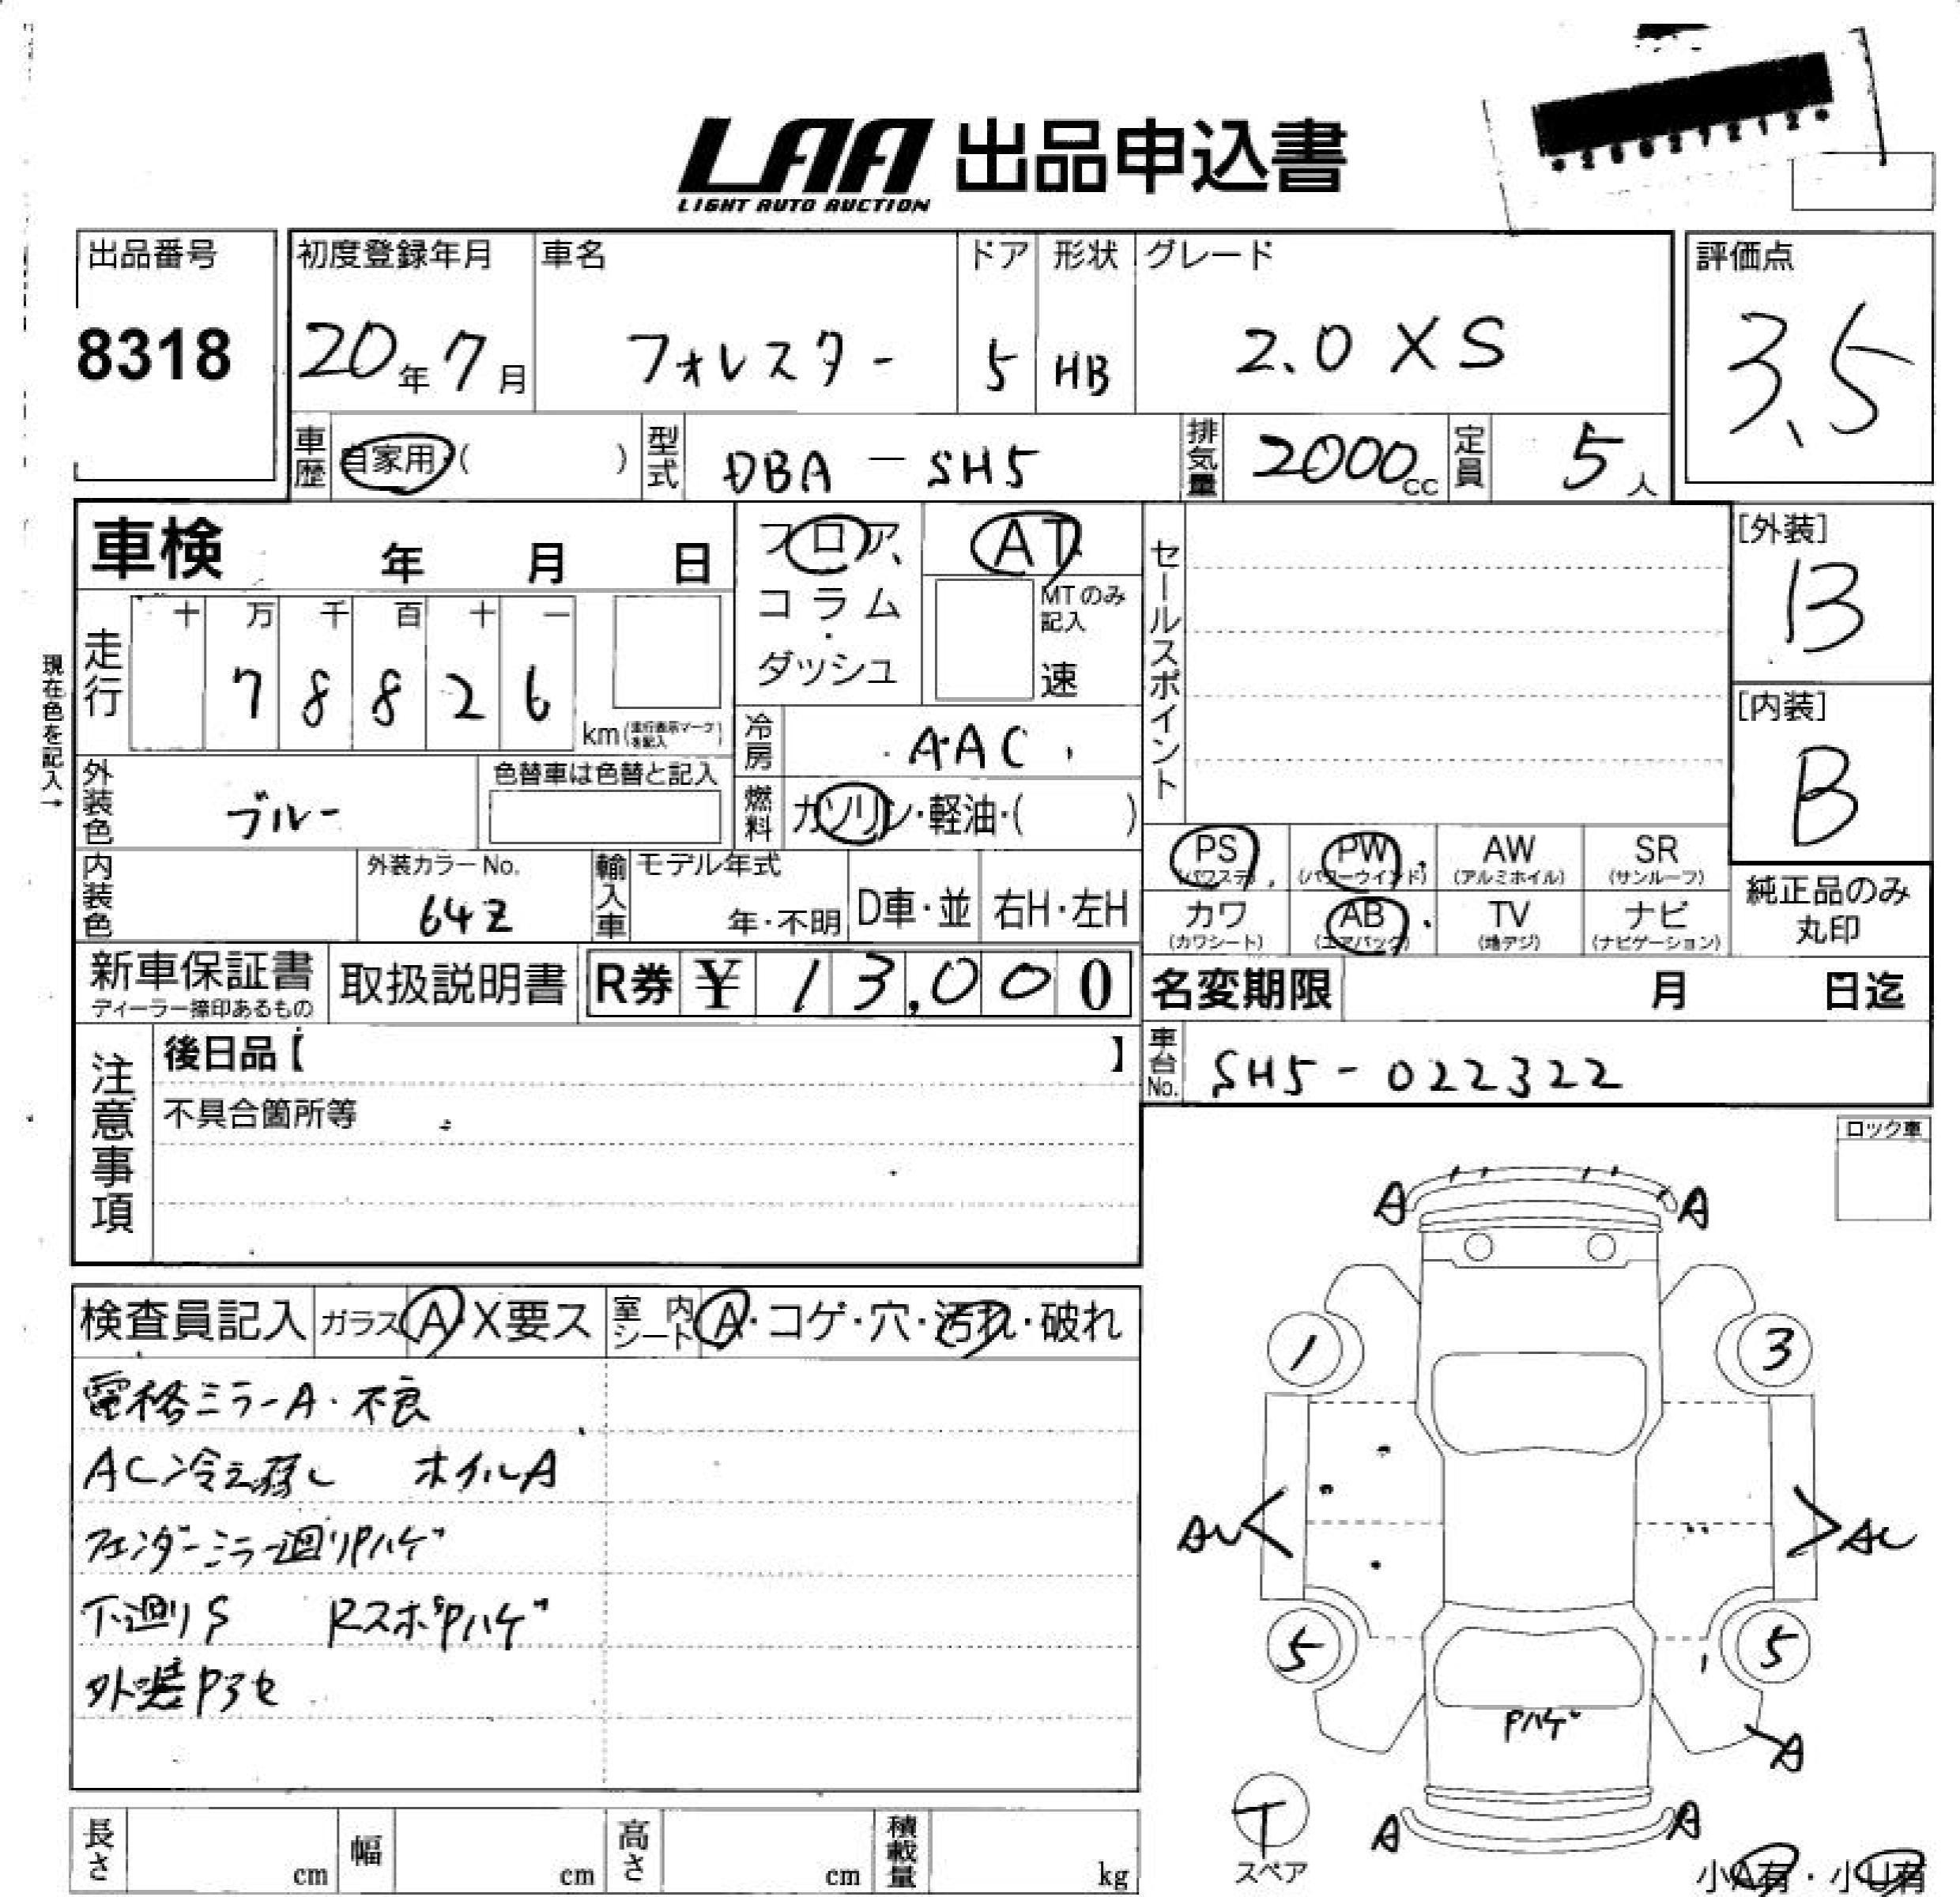 LAA 出品申込書
LIGHT AUTO AUCTION
出品番号 初度登録年月 車名 ドア 形状 グレード 評価点
8318 20年7月 フォレスター 5 HB 2.0 XS 3.5
車歴 自家用・( ) 型式 DBA-SH5 排気量 2000cc 定員 5人
車検 年 月 日 フロア、 AT
コラム・ MTのみ記入
ダッシュ 速
セールスポイント
[外装]
B
[内装]
B
現在色を記入→
走行 十 万 千 百 十 一
7 8 8 2 6
km(走行表示マークを記入)
冷房 AAC
外装色 ブルー 色替車は色替と記入
燃料 ガソリン・軽油・( )
PS (パワステ) PW (パワーウインド) AW (アルミホイル) SR (サンルーフ)
カワ (カワシート) AB (エアバック) TV (地デジ) ナビ (ナビゲーション)
純正品のみ
丸印
内装色 外装カラーNo. 64Z 輸入車 モデル年式 年・不明 D車・並 右H・左H
新車保証書 取扱説明書 R券 ¥ 13,000 名変期限 月 日迄
ディーラー捺印あるもの
注意事項 後日品【 】 車台No. SH5-022322
不具合箇所等
ロック車
A A
検査員記入 ガラス A X要ス 室内シート A・コゲ・穴・汚れ・破れ
1 3
電格ミラーA・不良
AC冷え弱し ホイルA
フェンダーミラー廻りPハゲ
AU AU
下廻りS RスポPハゲ
5 5
外装Pヨセ
Pハゲ
A
T
スペア
A A
長さ cm 幅 cm 高さ cm 積載量 kg
小A有・小U有